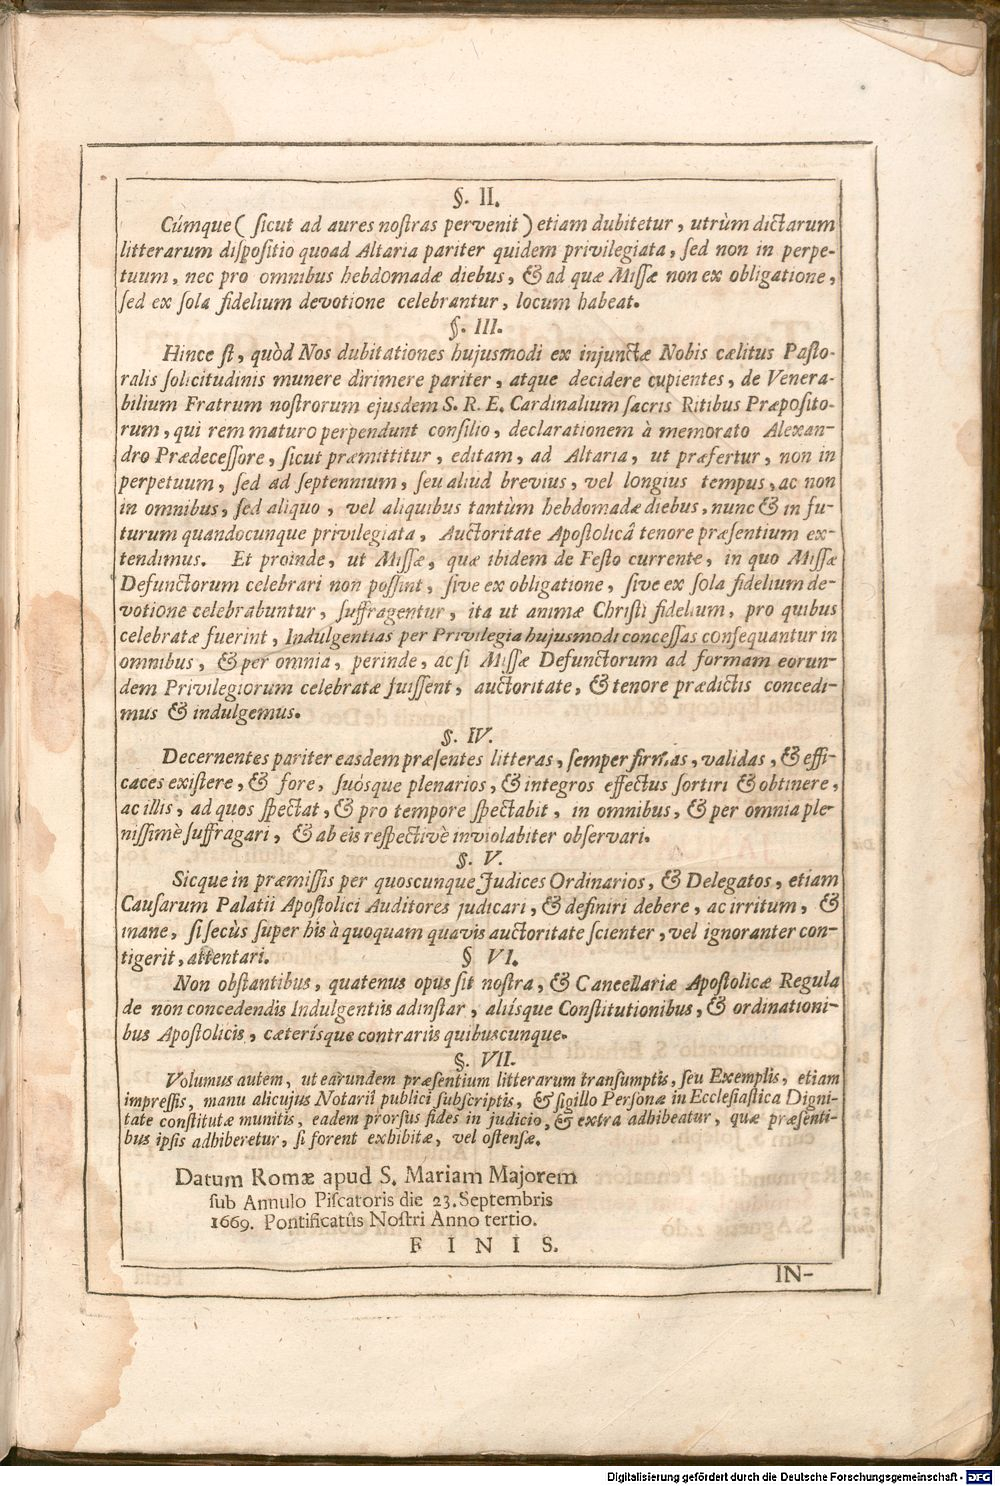 §. II.
Cúmque ( ſicut ad aures noſtras pervenit ) etiam dubitetur, utrùm dictarum
litterarum diſpoſitio quoad Altaria pariter quidem privilegiata, ſed non in perpe-
tuum, nec pro omnibus hebdomadæ diebus, & ad quæ Miſſæ non ex obligatione,
ſed ex ſola fidelium devotione celebrantur, locum habeat.
§. III.
Hinc eſt, quòd Nos dubitationes hujuſmodi ex injunctæ Nobis cælitus Paſto-
ralis ſolicitudinis munere dirimere pariter, atque decidere cupientes, de Venera-
bilium Fratrum noſtrorum ejuſdem S. R. E. Cardinalium ſacris Ritibus Præpoſito-
rum, qui rem maturo perpendunt conſilio, declarationem à memorato Alexan-
dro Prædeceſſore, ſicut præmittitur, editam, ad Altaria, ut præfertur, non in
perpetuum, ſed ad ſeptennium, ſeu aliud brevius, vel longius tempus, ac non
in omnibus, ſed aliquo, vel aliquibus tantùm hebdomadæ diebus, nunc & in fu-
turum quandocunque privilegiata, Auctoritate Apoſtolicâ tenore præſentium ex-
tendimus. Et proinde, ut Miſſæ, quæ ibidem de Feſto currente, in quo Miſſæ
Defunctorum celebrari non poſſint, ſive ex obligatione, ſive ex ſola fidelium de-
votione celebrabuntur, ſuffragentur, ita ut animæ Chriſti fidelium, pro quibus
celebratæ fuerint, Indulgentias per Privilegia hujuſmodi conceſſas conſequantur in
omnibus, & per omnia, perinde, ac ſi Miſſæ Defunctorum ad formam eorun-
dem Privilegiorum celebratæ fuiſſent, auctoritate, & tenore prædictis concedi-
mus & indulgemus.
§. IV.
Decernentes pariter easdem præſentes litteras, ſemper firmas, validas, & effi-
caces exiſtere, & fore, ſuósque plenarios, & integros effectus ſortiri & obtinere,
ac illis, ad quos ſpectat, & pro tempore ſpectabit, in omnibus, & per omnia ple-
niſſimè ſuffragari, & ab eis reſpectivè inviolabiter obſervari.
§. V.
Sicque in præmiſſis per quoscunque Judices Ordinarios, & Delegatos, etiam
Cauſarum Palatii Apoſtolici Auditores judicari, & definiri debere, ac irritum, &
inane, ſi ſecùs ſuper his à quoquam quavis auctoritate ſcienter, vel ignoranter con-
tigerit, attentari. § VI.
Non obſtantibus, quatenus opus ſit noſtra, & Cancellariæ Apoſtolicæ Regula
de non concedendis Indulgentiis ad inſtar, aliísque Conſtitutionibus, & ordinationi-
bus Apoſtolicis, cæterísque contrariis quibuscunque.
§. VII.
Volumus autem, ut earundem præſentium litterarum tranſumptis, ſeu Exemplis, etiam
impreſſis, manu alicujus Notarii publici ſubſcriptis, & ſigillo Perſonæ in Eccleſiaſtica Digni-
tate conſtitutæ munitis, eadem prorſus fides in judicio, & extra adhibeatur, quæ præſenti-
bus ipſis adhiberetur, ſi forent exhibitæ, vel oſtenſæ.
Datum Romæ apud S. Mariam Majorem
ſub Annulo Piſcatoris die 23. Septembris
1669. Pontificatûs Noſtri Anno tertio.
F I N I S.
IN-
Digitalisierung gefördert durch die Deutsche Forschungsgemeinschaft - DFG